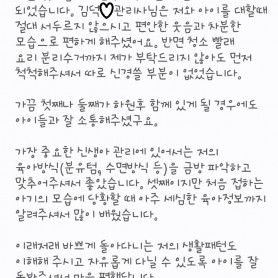 되었습니다. 김덕♥관리사님은 저와 아이를 대할때
절대 서두르지 않으시고 편안한 웃음과 차분한
모습으로 편하게 해주셨어요. 반면 청소 빨래
요리 분리수거까지 제가 부탁드리지 않아도 먼저
척척해주셔서 따로 신경쓸 부분이 없었습니다.
가끔 첫째나 둘째가 하원후 함께 있게 될 경우에도
아이들과 잘 소통해주셨구요.
가장 중요한 신생아 관리에 있어서는 저희
육아방식(분유텀, 수면방식 등)을 금방 파악하고
맞추어주셔서 좋았습니다. 셋째이지만 처음 접하는
아기의 모습에 당황할 때 아주 세심한 육아정보까지
알려주셔서 많이 배웠습니다.
이래저래 바쁘게 돌아다니는 저의 생활패턴도
이해해 주시고 자유롭게 다닐 수 있도록 아이를 잘